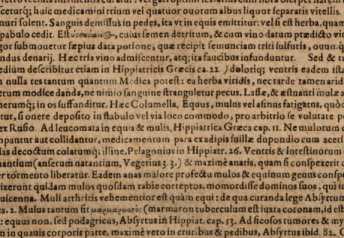 cetur; huic medicamini trium vel quatuor quorum albus liquor separatis vitellis
uni solent. Sanguis demissus in pedes, ita vt in equis emittitur: vel si est herba, quam
pabulo cedit. Est cuius semen detritum, & cum vino datum prædicto vi
gor submouetur sæpius data potione, quæ recipit semunciam triti sulfuris, ouum
ndus denarij. Hæc tria vino admiscentur, atq; ita faucibus infunduntur. Sed & t
dium describetur etiam in Hippiatricis Græcis ca. 22. Idolorij; ventris eadem ista
à nulla res tantum quantum Medica potest: ea herba viridis, nec tarde tamen aridi
rum modice danda, ne nimio sanguine stranguletur pecus. Lassæ, & æstuanti mulæ a
merumq; in os suffunditur. Hæc Columella. Equus, mulus vel asinus fatigatus, quòd
tur, si onere deposito in stabulo vel via loco commodo, pro arbitrio se volutate p
er Ruffo. Ad leucomata in equa & mulis, Hippiatrica Græca cap. 11. Ne mulorum
mpantur aut collidantur, medicamentum para ex radijs fusillæ duponduo cum aceri
das decoctum calidumq; illine, Pelagonius in Hippiatr. 26. Ventris & intestinorum
nantium (anserum natantium, Vegetius 3 3.) & maximè anatis, quam si conspexerit c
er tormento liberatur. Eadem anas maiore profectu mulos & equinum genus conspe
dixerunt quidam mulos quosdam rabie correptos, momordisse dominos suos, qui i
uicenna. Muli arthritis vehementior est quàm equi: de qua curanda lege Absyrtus
s 2. Mulus tantum fit (marmaron tuberculum est iuxta coronam, id est
: equus non. sed podagricus, Absyrtus in Hippiatr. cap. 53. Ad scefos tumores & my
m in quauis corporis parte, maximè verò in cruribus & pedibus, Absyrtus ibid. 82. C